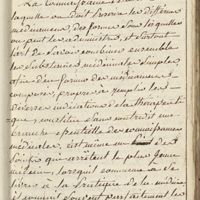 La Connaissance d
laquelle on doit prescrire les différens
médicamens, des formes sous lesquelles
on peut les administrer, et surtout
l'art de savoir combiner ensemble
les substances médicinales simples,
afin d'en former des médicamens
composés, propres à remplir les
diverses indications de la thérapeutique,
constitue sans contredit une
branche essentielle des connaissances
médicales, est même un des
soins qui arrêtent le plus jeune
médecin, lorsqu'il commence à se
livrer à la pratique de la médecine,
et souvent